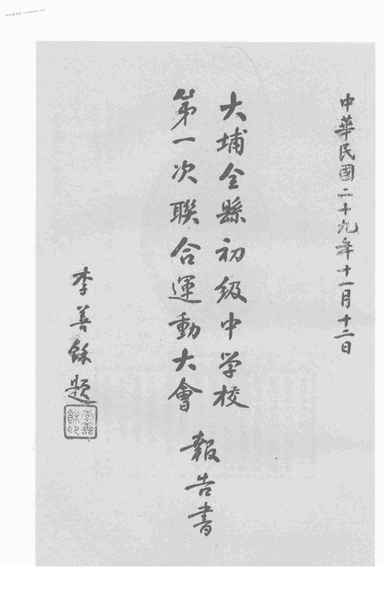 中華民國二十九年十一月十二日
大埔全縣初級中学校
第一次聯合運動大會
報告書
李善餘題